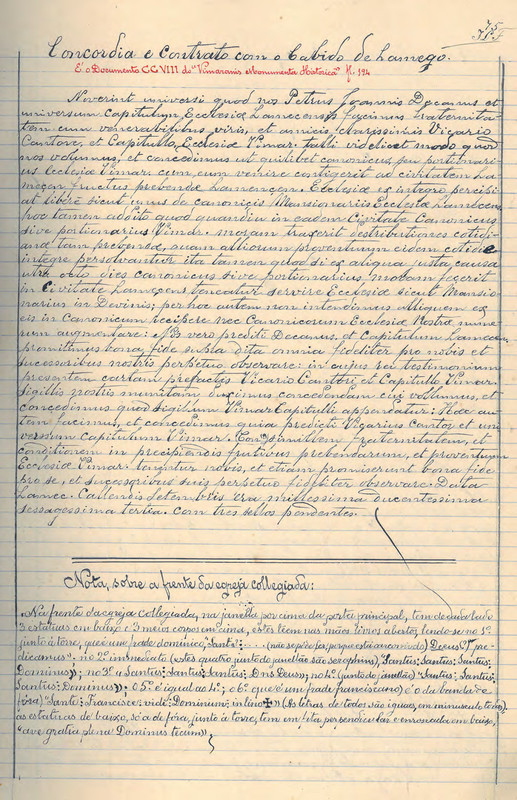 Concordia e contrato com o Cabido de Lamego.
É o Documento CCVIII de "Vimaranis Monumenta Historica" f. 194
Noverint universi quod nos Petrus Joannis Decanus et
universum Capitulum Ecclesiæ Lamecensis facimus fraternita-
tem cum venerabilibus viris, et amicis clarissimis Vicario
Cantore, et Capitullo Ecclesiæ Vimar. talli videlicet modo quod
nos volumus, et concedimus ut quilibet canonicus, seu portionari-
us Ecclesiæ Vimar. cum, cum venire contigerit ad civitatem La-
mecen functus prebenda Lamencen. Ecclesiæ ex integro percipi-
at liberè sicut unus de canonicis Mansionariis Ecclesiæ Lamecen.
hoc tamen addito quod quandiu in eadem Civitate Canonicus
sive portionarius Vimar. moram traxerit destributiones cotidi-
anæ tam prebendæ, quam alliorum proventuum eidem cotidie
integre persolvantur ita tamen quod si ex aliqua justa causa
ultra octo dies canonicus sive portionarius moram fecerit
in Civitate Lamecens teneatur servire Ecclesiæ sicut Mansio-
narius in Devinis; per hoc autem non intendimus alliquem ex
eis in Canonicum recipere nec Canonicorum Ecclesiæ Nostræ nume-
rum augmentare: Nos vero prediti Decanus, et Capitulum Lamecen.
promittimus bona fide supra dita omnia fideliter pro nobis et
sucessoribus nostris perpetuo observare: in cujus rei testimonium
presentem cartam prefactis Vicario Cantori et Capitullo Vimar.
sigillis nostris munitam duximus concedendam cui volumus, et
concedimus quod sigilum Vimar Capitulli appendatur: Hæc au-
tem facimus, et concedimus quia predicti Vigarius Cantor et uni-
versum Capitulum Vimar. Consimillem fraternitatem, et
conditionem in precipiendis frutivus prebendarum, et proventuum
Ecclesiæ Vimar. largitur nobis, et etiam promiserunt bona fide
pro se, et sucessorivus suis perpetuo fideliter observare. Data
Lamec. Callendis Setembris Era millessima ducentessima
sessagessima tertia. Com tres sellos pendentes.
Nota, sobre a frente da egreja collegiada:
Na frente da egreja collegiada, na janella por cima da porta principal, tem de cada lado
3 estatuas em baixo e 3 meios corpos em cima, estes teem nas mãos livros abertos, lendo-se no 1º
junto á torre, que é um frade dominico, Sante: ...
dicamus". no 2º immediato (e estes quatro junto do janellão são seraphins), Santus: Santus: Santus:
Dominus); no 3º Santus: Santus: Santus: Dns Deus»; no 4º (junto do janellão) "Santus, Santus:
Santus: Dominus»: O 5º é igual ao 4º; o 6º que é um frade franciscano) é o da banda de
fóra). Sante: Francisce: vide Dominum: in lino ✠» (As letras de todos são iguaes, em minusculo todas).
as estatuas de baixo, só a de fóra, junto à torre, tem um fita perpendicular e enroscada em baixo,
"ave gratia plena Dominus tecum"»;